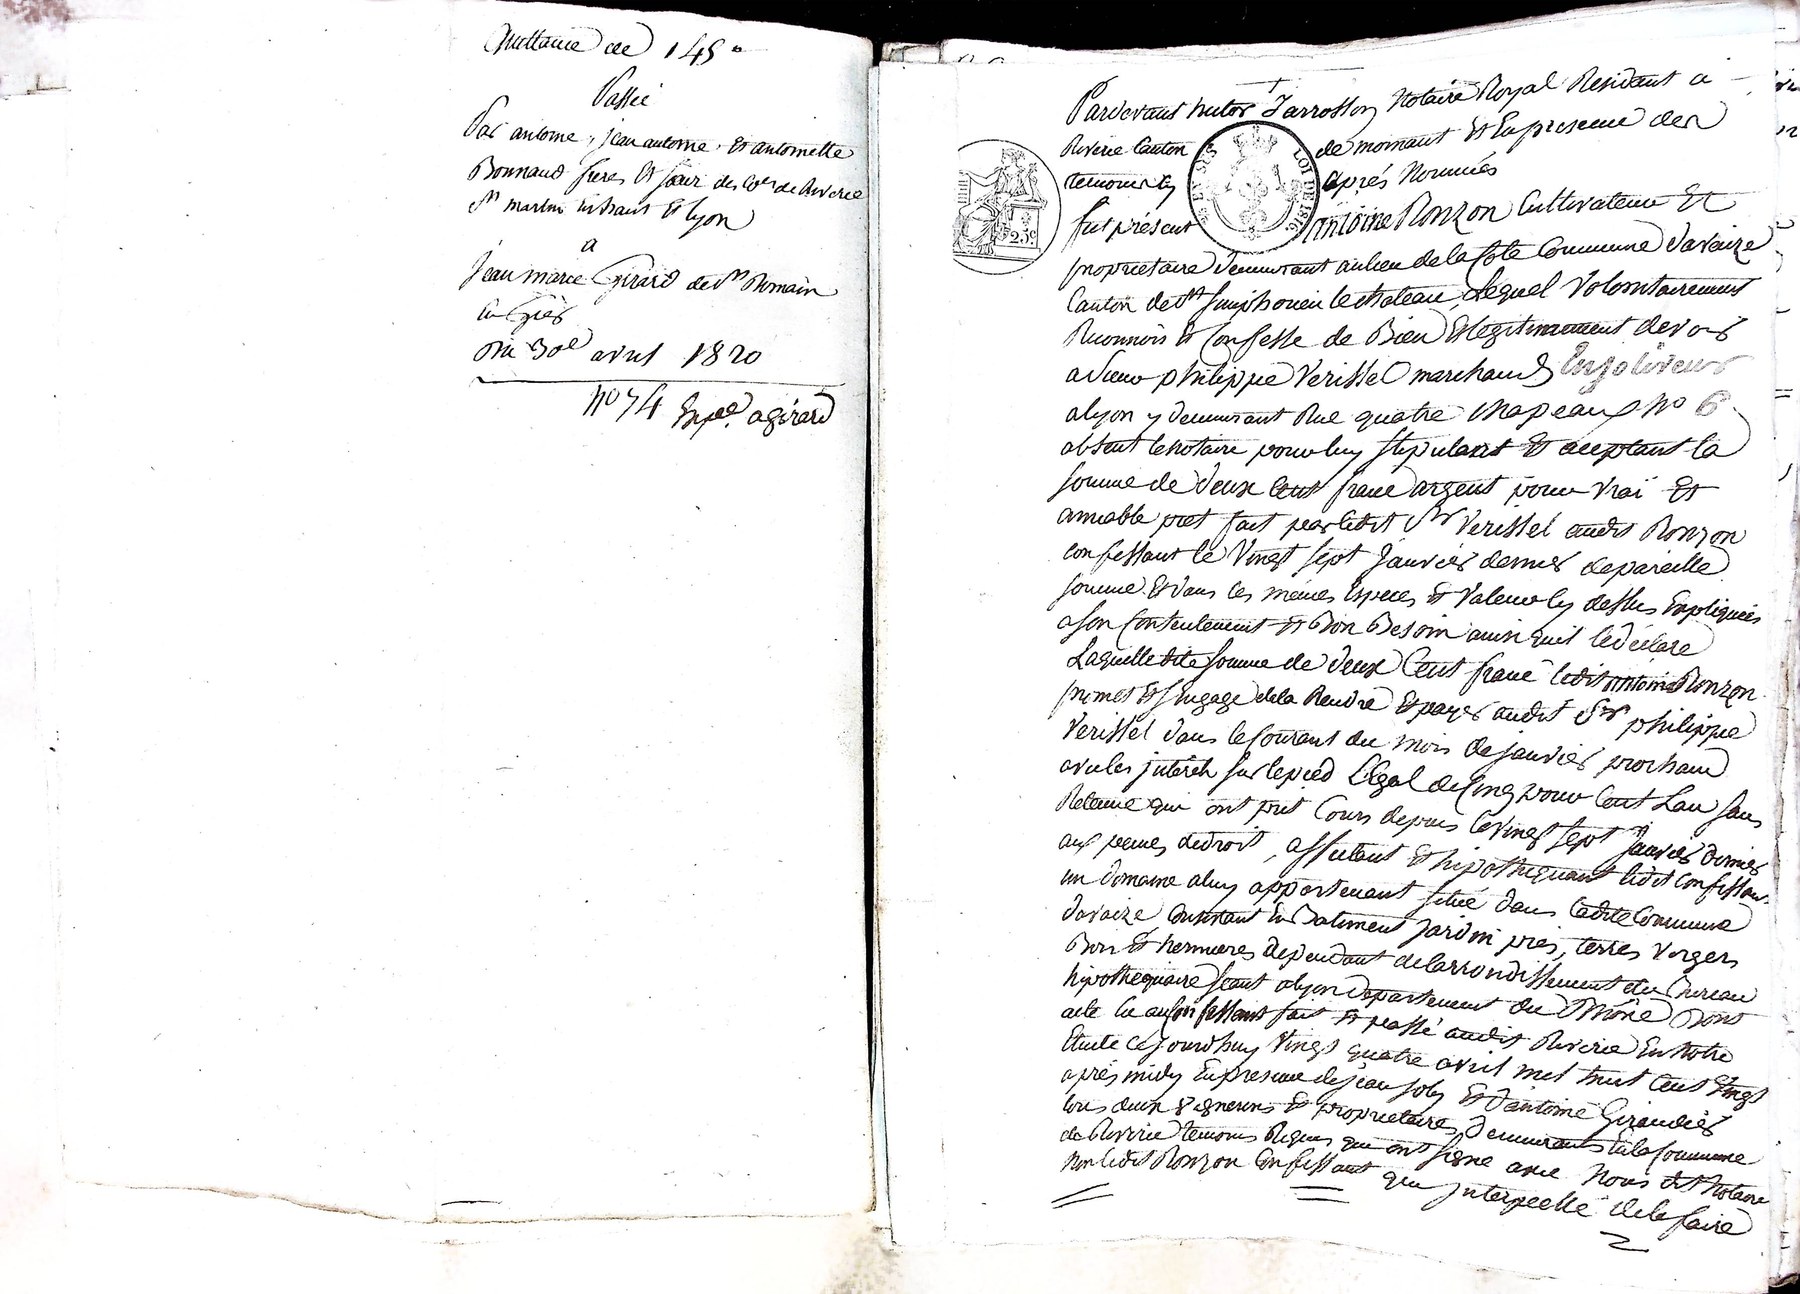 Quittance de 145 "
Passée
Par antoine, jean antoine, et antoinette
Bonnaud freres et sœur des Cnes de Riverie
St martin en haut et Lyon
a
jean marie Girard de St Romain
en Gier
Du 30e avril 1820
No 74 Expée a girard
Pardevant Victor Jarrosson Notaire Royal Residant a
Riverie Canton de mornant et En presence des
temoins cy après Nommés
fut présent Antoine Ronzon Cultivateur Et
proprietaire demeurant au lieu de la Cote Commune davaize
Canton de St Simphorien le chateau, Lequel Volontairement
Reconnois et Confesse de Bien et legitimement devoir
a Sieur philippe Verissel marchand Enjoliveur
a lyon y demeurant Rue quatre chapeaux No 6
absent le notaire pour luy stipulant et acceptant la
somme de deux cent franc argent pour vrai Et
amiable pret fait par ledit Sr Verissel audit Ronzon
confessant le Vingt sept janvier dernier de pareille
somme et dans les mêmes Especes et Valeur cy dessus Expliquées
a son Contentement et Bon Besoin ainsi quil le déclare
Laquelle dite somme de deux Cent franc ledit antoine Ronzon
promet et s'engage de la Rendre et payer audit Sr philippe
Verissel dans le Courant du mois de janvier prochain
avec les jnterets sur le pied Légal de Cinq pour Cent Lan sans
Retenue qui ont prit Cours depuis le Vingt sept janvier dernier
aux peines de droit, assurant et hipothequant ledit confessant
un domaine a luy appartenant situé dans ladite Commune
davaize Consistant En Batiment jardin, prés, terres vergers
Bois et hermieres dependant de larrondissement du Bureau
hipothequaire séant a lyon Departement du Rhône Dont
acte lu au confessant fait et passé audit Riverie En notre
Etude Ce jourdhuy Vingt quatre avril mil huit Cent Vingt
après midy En presence de jean joly et d'antoine Giraudier
tous deux vignerons et proprietaires demeurants En la Commune
de Riverie temoins Requis qui ont signé avec Nous dit Notaire
Non ledit Ronzon Confessant qui jnterpellé de le faire